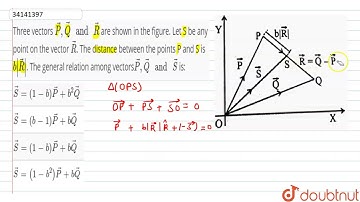 34141397
Three vectors $\vec{P}, \vec{Q}$ and $\vec{R}$ are shown in the figure. Let S be any
point on the vector $\vec{R}$. The distance between the points P and S is
$b|\vec{R}|$. The general relation among vectors $\vec{P}, \vec{Q}$ and $\vec{S}$ is:
$\vec{S} = (1-b)\vec{P} + b^2\vec{Q}$
$\vec{S} = (b-1)\vec{P} + b\vec{Q}$
$\vec{S} = (1-b)\vec{P} + b\vec{Q}$
$\vec{S} = (1-b^2)\vec{P} + b\vec{Q}$
Δ(OPS)
$\vec{OP} + \vec{PS} + \vec{SO} = 0$
$\vec{P} + b|\vec{R}|\hat{R} + (-\vec{S}) = 0$
Y
P
$b|\vec{R}|$
$\vec{P}$
$\vec{S}$
S
$\vec{R} = \vec{Q} - \vec{P}$
$\vec{Q}$
Q
O
X
doubtnut